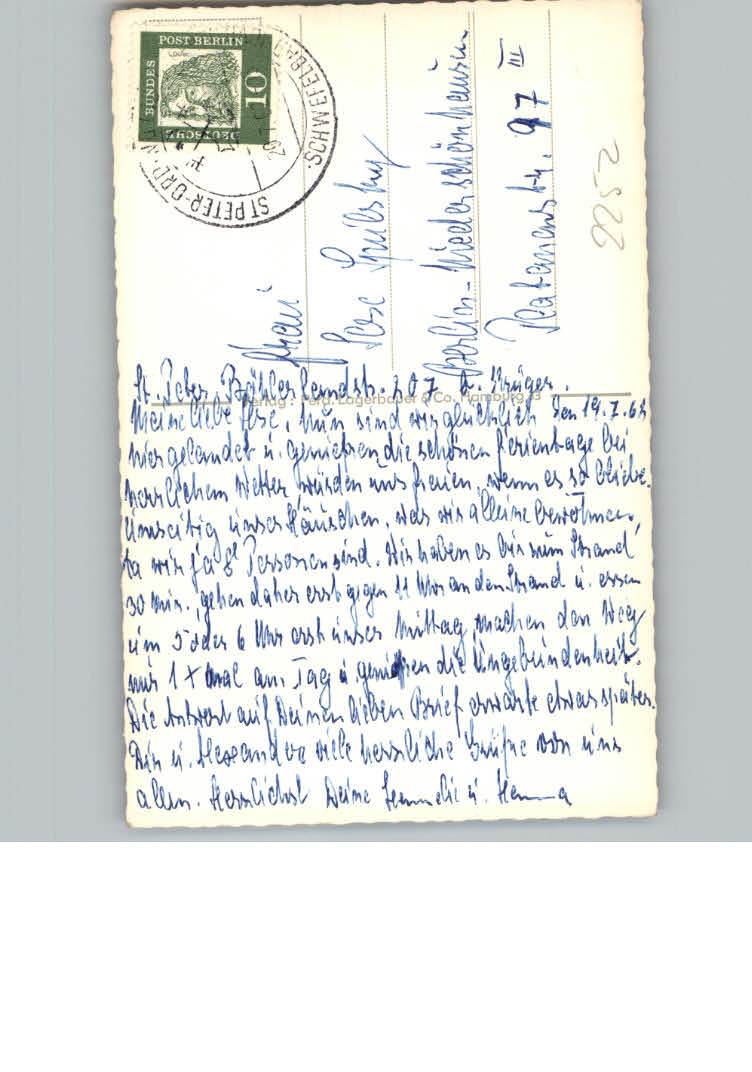 DEUTSCHE BUNDESPOST BERLIN
10
ST PETER-ORDING
SCHWEFELBAD
Frau
Berlin-Niederschönhausen
Platanenstr. 97 III
2252
St. Peter Böhler Landstr. 207 b. Krüger.
Verlag: Ferd. Lagerbauer & Co. Hamburg 33
den 19.7.62
Meine liebe Ilse, nun sind wir glücklich
hier gelandet u. genießen die schönen Ferientage bei
herrlichem Wetter, würden uns freuen, wenn es so bliebe.
Umseitig unser Häuschen, was wir alleine bewohnen,
da wir ja 8 Personen sind. Wir haben es bis zum Strand
30 Min., gehen daher erst gegen 11 Uhr an den Strand u. essen
um 5 oder 6 Uhr erst unser Mittag, machen den Weg
nur 1 x mal am Tag u. genießen die Ungebundenheit.
Die Antwort auf Deinen lieben Brief erwarte etwas später.
Dir u. Alexander viele herzliche Grüße von uns
allen. Herzlichst Deine u.